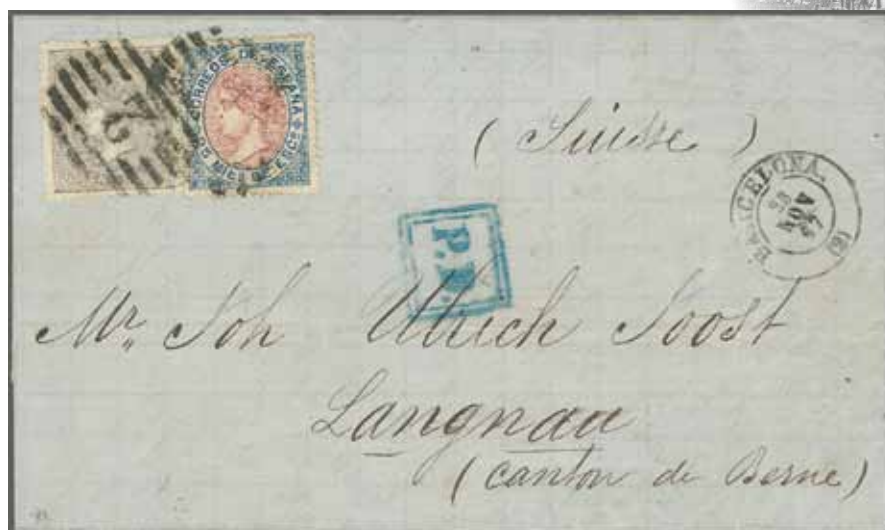 CORREOS DE ESPAÑA
25 MILS DE ESCO
2
(Suisse)
BARCELONA.
NOV
(2)
P.D.
Mr. Joh Ulrich Joost
Langnau
(canton de Berne)